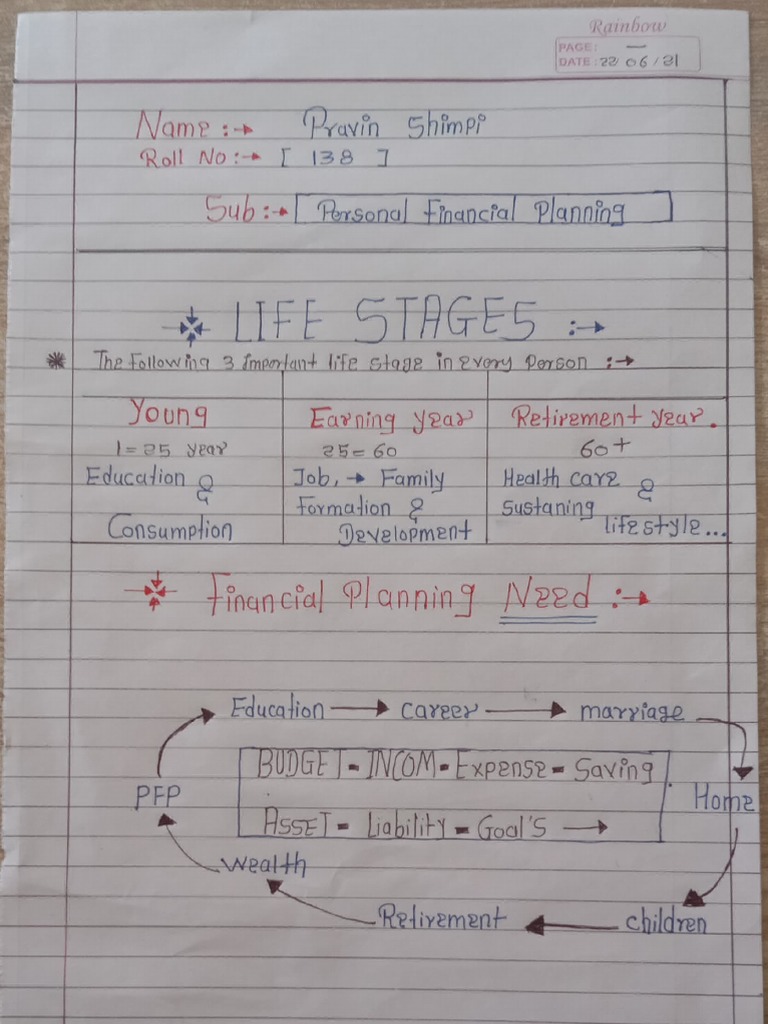 Rainbow
PAGE: —
DATE: 22 06/21
Name :→ Pravin Shimpi
Roll No :→ [ 138 ]
Sub :→ Personal Financial Planning
LIFE STAGES :→
* The following 3 important life stage in every person :→
Young Earning year Retirement year.
1=25 year 25=60 60+
Education & Job, → Family Health care &
Formation & sustaning
Consumption Development lifestyle...
Financial Planning Need :→
Education → career → marriage
BUDGET - INCOM - Expense - Saving
PFP Home
ASSET - Liability - Goal'S →
Wealth
Retirement children